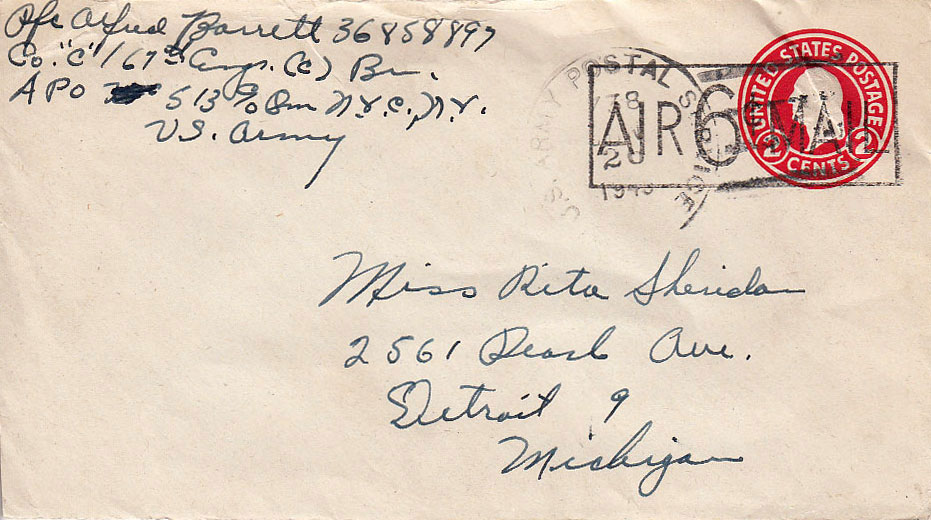 Pfc Alfred Barrett 36858897
Co. "C" 167th Engr. (C) Bn.
APO 513 % Pm N.Y.C., N.Y.
U.S. Army
U.S. ARMY POSTAL SERVICE
20
194
AIR 6¢ MAIL
UNITED STATES POSTAGE
2 CENTS 2
Miss Rita Sheridan
2561 Pearl Ave.
Detroit 9
Michigan